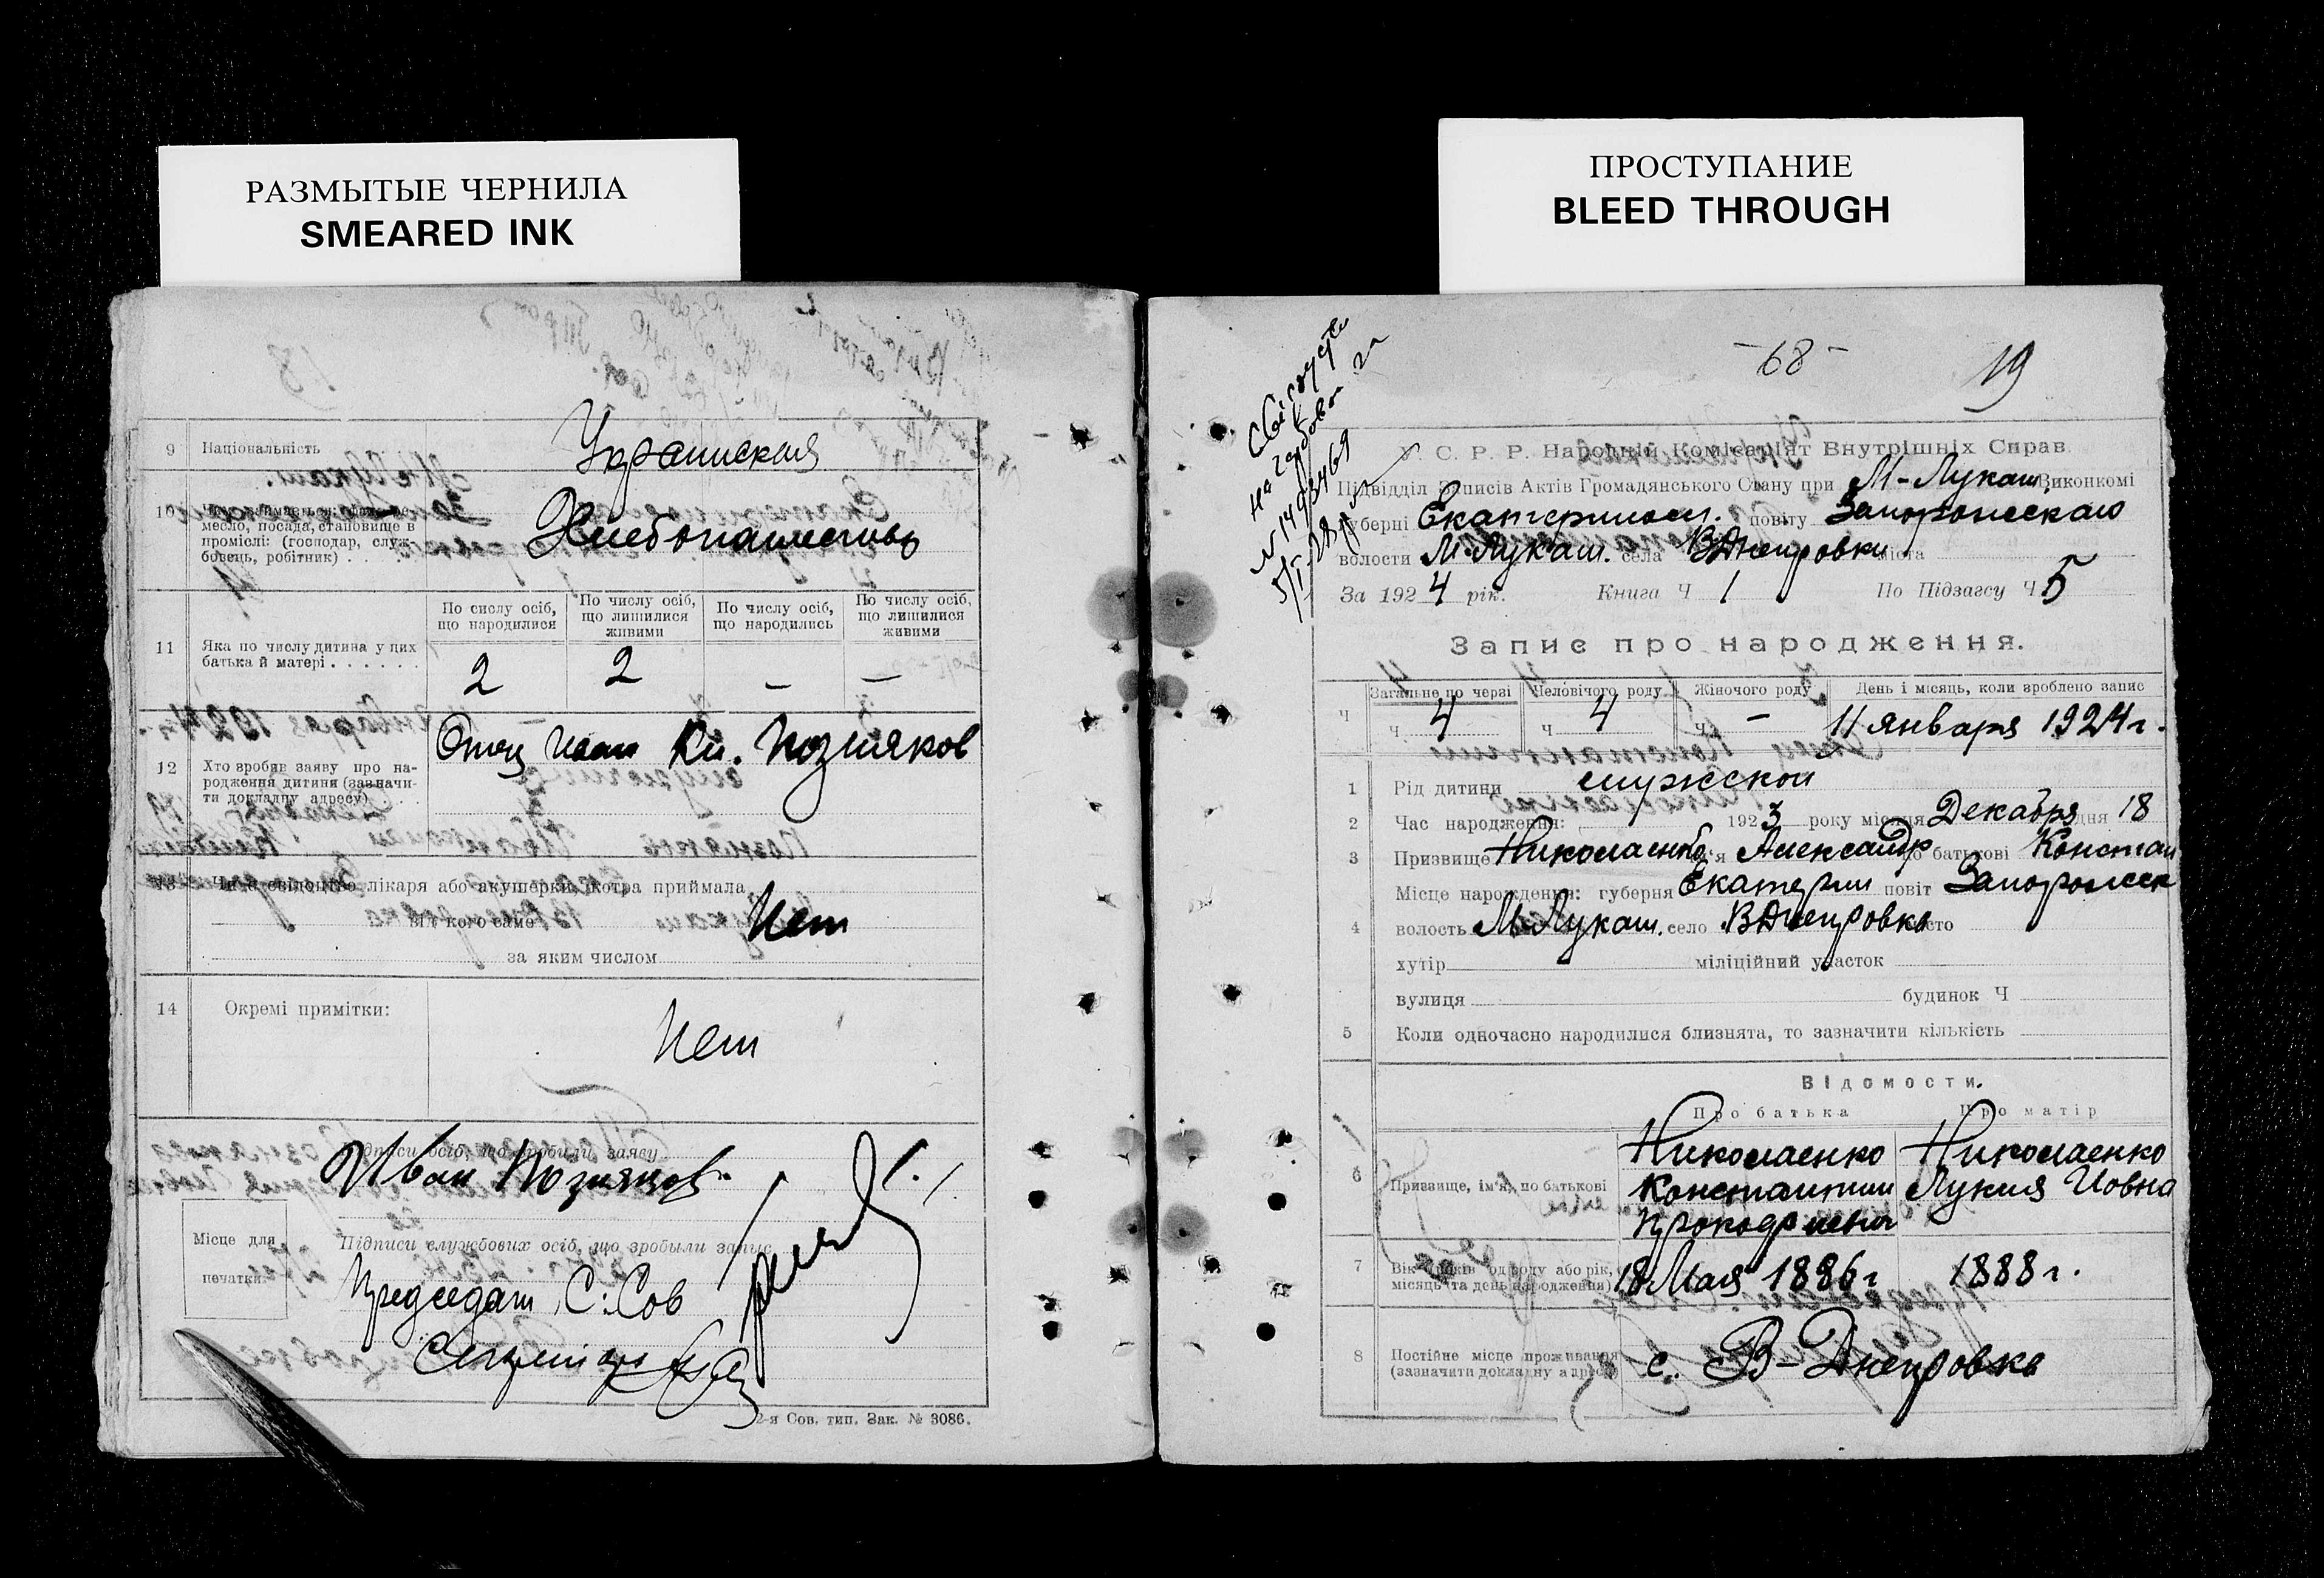 РАЗМЫТЫЕ ЧЕРНИЛА
SMEARED INK
9 Національність Украинская
10
месло, посада, становище в
проміслі: (господар, служ-
бовець, робітник) Хлебопашество
11 Яка по числу дитина у цих
батька й матері
По числу осіб, що народилися
По числу осіб, що лишилися живими
По числу осіб, що народились
По числу осіб, що лишилися живими
2 2 — —
12 Хто вробив заяву про на-
родження дитини (зазначи-
ти докладну адресу)
Отец Иван Кл. Позняков
13 лікаря або акушерки, котра приймала
від кого саме Нет
за яким числом
14 Окремі примітки:
Нет
Підписи осіб, що зробили заяву
Иван Позняков
Місце для
печатки
Підписи службових осіб, що зробыли запис
Председат С. Сов
2-я Сов. тип. Зак. № 3086.
ПРОСТУПАНИЕ
BLEED THROUGH
-68-
19
У. С. Р. Р. Народній Комісаріят Внутрішніх Справ
Підвідділ Записів Актів Громадянського Стану при М-Лукаш. Виконкомі
губерні Екатериносл. повіту Запорожскаго
волости М-Лукаш. села ВДнепровки міста
За 1924 рік. Книга Ч 1 По Підзагсу Ч 5
Запис про народження.
Загальне по черзі Человічого роду Жіночого роду День і місяць, коли зроблено запис
Ч Ч 4 Ч 4 Ч — 11 января 1924 г.
1 Рід дитини мужской
2 Час народження: 1923 року місяця Декабря дня 18
3 Призвище Николаенко ім'я Александр по батькові Констан
Місце нарождення: губерня Екатерин повіт Запорожск
4 волость М-Лукаш. село ВДнепровка місто
хутір міліційний участок
вулиця будинок Ч
5 Коли одночасно народилися близнята, то зазначити кількість
Відомости.
Про батька Про матір
6 Призвище, ім'я, по батькові
Николаенко Константин Прокофиевич
Николаенко Лукия Иовна
7 Вік (років од роду або рік,
місяць та день народження)
18 Мая 1886 г 1888 г.
8 Постійне місце проживання
(зазначити докладну адресу)
с. В-Днепровка